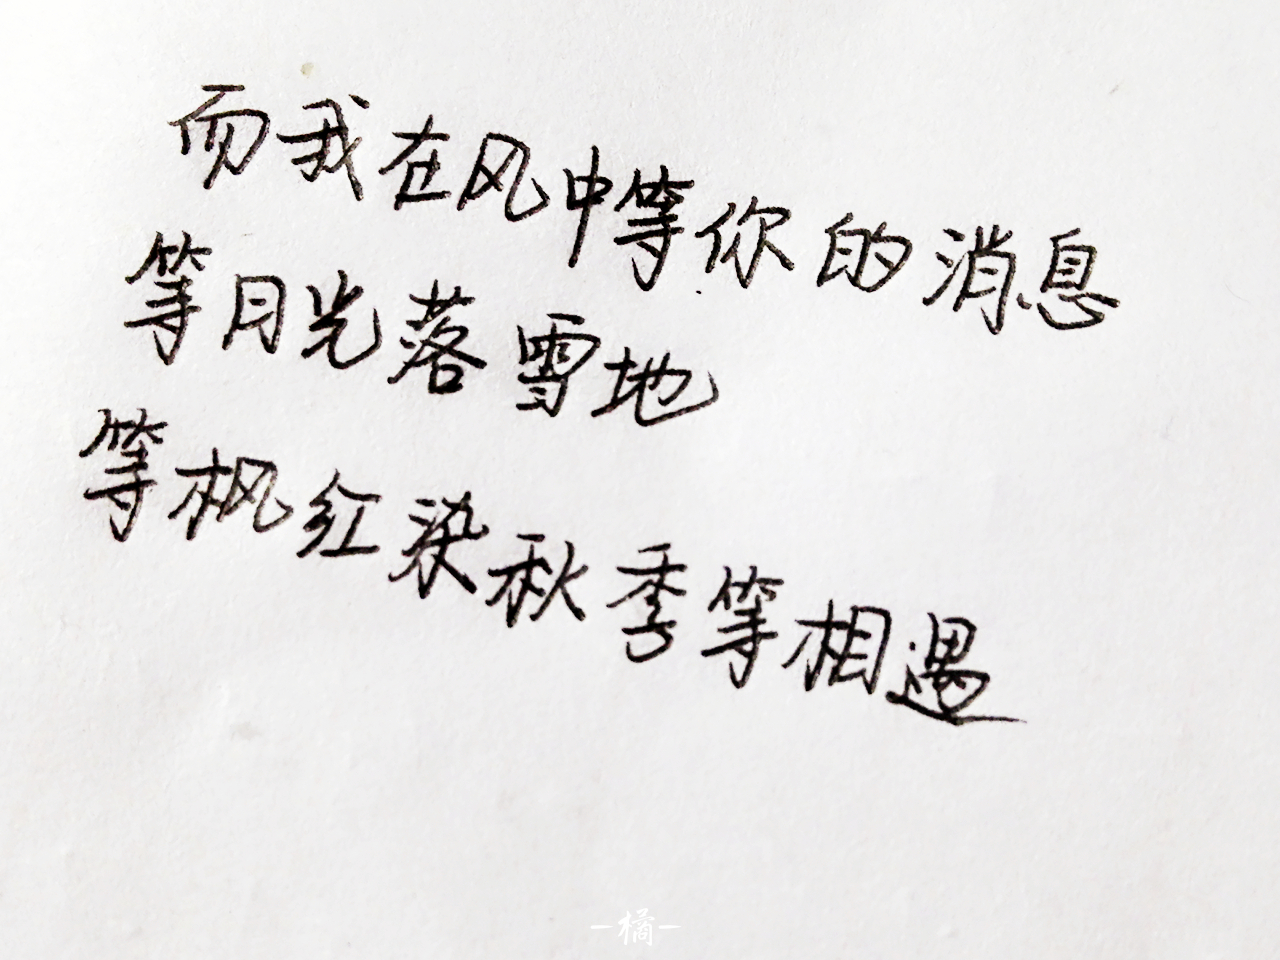 而我在风中等你的消息
等月光落雪地
等枫红染秋季等相遇
-橘-